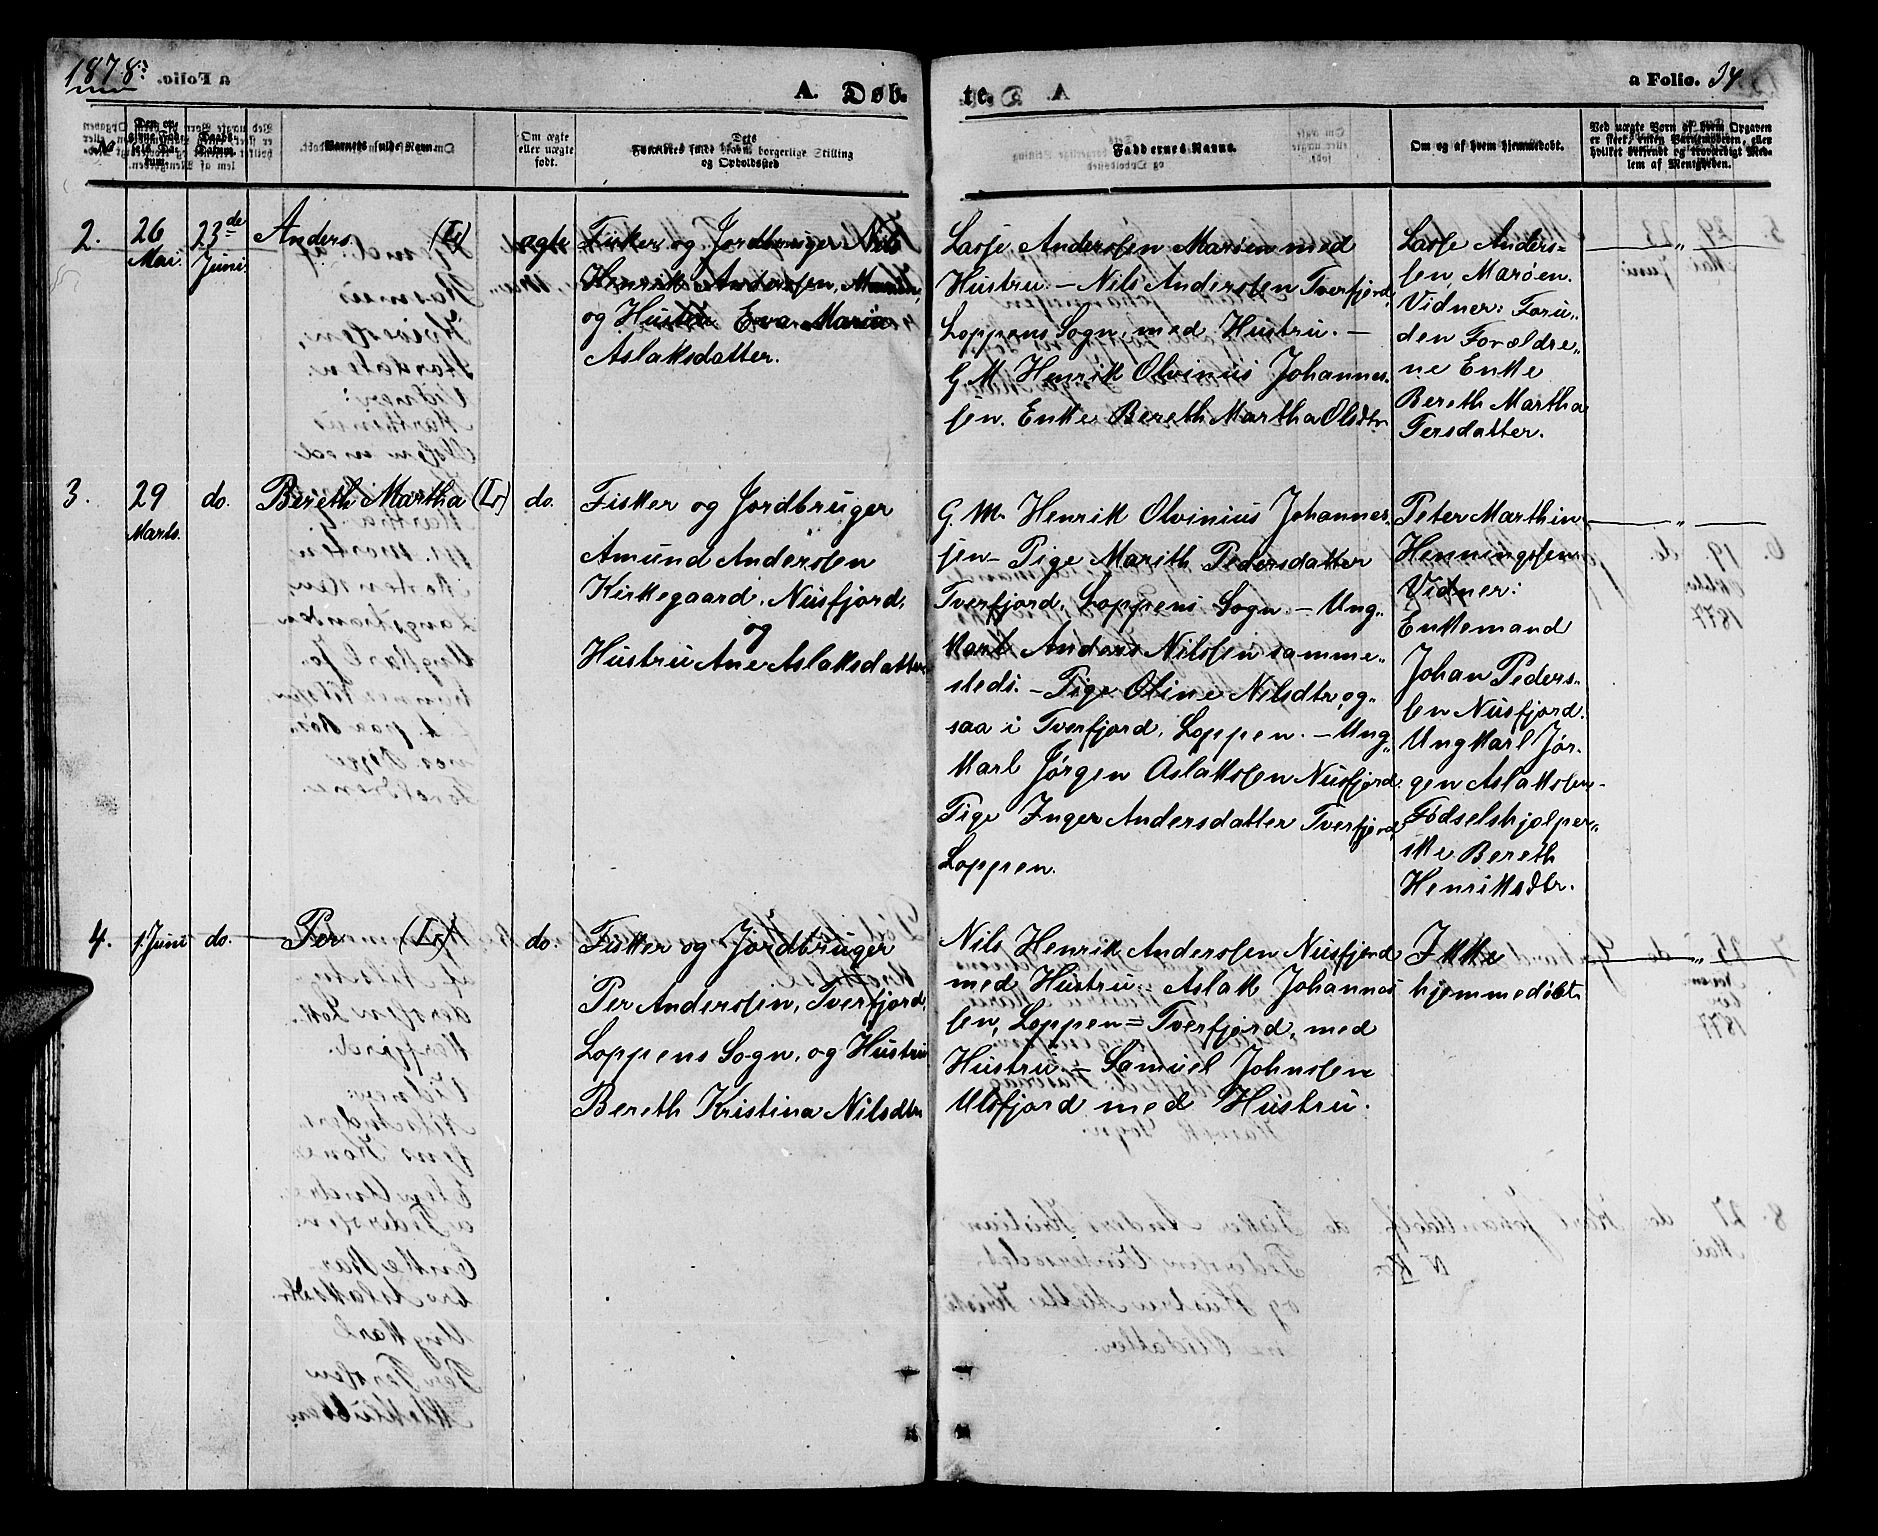 1878
A. Døb
te.
a Folio. 34
No
Daabs-
Datum.
Barnets fulde Navn.
Om ægte
eller uægte
født.
og Opholdssted
Faddernes Navne.
Om og af hvem hjemmedøbt.
Ved uægte Børn af hvem Opgaven
er skeet, enten Barnemoderen, eller
hvilket bekjendt og troværdigt Med-
lem af Menigheden.
2.
26
Mai.
23de
Juni.
Anders. (L)
ægte
Fisker og Jordbruger Nils
Henrik Andersen,
og Hustru Eva Maria
Aslaksdatter.
Lasse Andersen Marøen med
Hustru. – Nils Andersen Tverfjord,
Loppens Sogn, med Hustru. –
G. M. Henrik Olvinius Johannes-
sen. Enke Bereth Martha Olsdtr.
Lasse Anders-
sen, Marøen.
Vidner: Foru-
den Forældre-
ne Enke
Bereth Martha
Persdatter.
3.
29
Marts.
do.
Bereth Martha (L)
do.
Fisker og Jordbruger
Amund Andersen
Kirkegaard, Nusfjord,
og
Hustru Ane Aslaksdatter
G. M. Henrik Olvinius Johannes-
sen – Pige Marith Pedersdatter
Tverfjord, Loppens Sogn. – Ung-
karl Anders Nilssen samme-
steds. – Pige Oline Nilsdtr. og-
saa i Tverfjord, Loppen. – Ung-
karl Jørgen Aslaksen Nusfjord.
Pige Inger Andersdatter Tverfjord,
Loppen.
Peter Marthin
Henningsen.
Vidner:
Enkemand
Johan Peders-
sen Nusfjord.
Ungkarl Jør-
gen Aslaksen –
Fødselshjælper-
ske Bereth
Henriksdtr.
4.
1. Juni
do.
Per (L)
do.
Fisker og Jordbruger
Per Andersen, Tverfjord,
Loppens Sogn, og Hustru
Bereth Kristina Nilsdtr.
Nils Henrik Andersen Nusfjord
med Hustru. – Aslak Johannes-
sen, Loppen = Tverfjord, med
Hustru. – Samuel Johnsen
Ulsfjord med Hustru.
Ikke
hjemmedøbt.